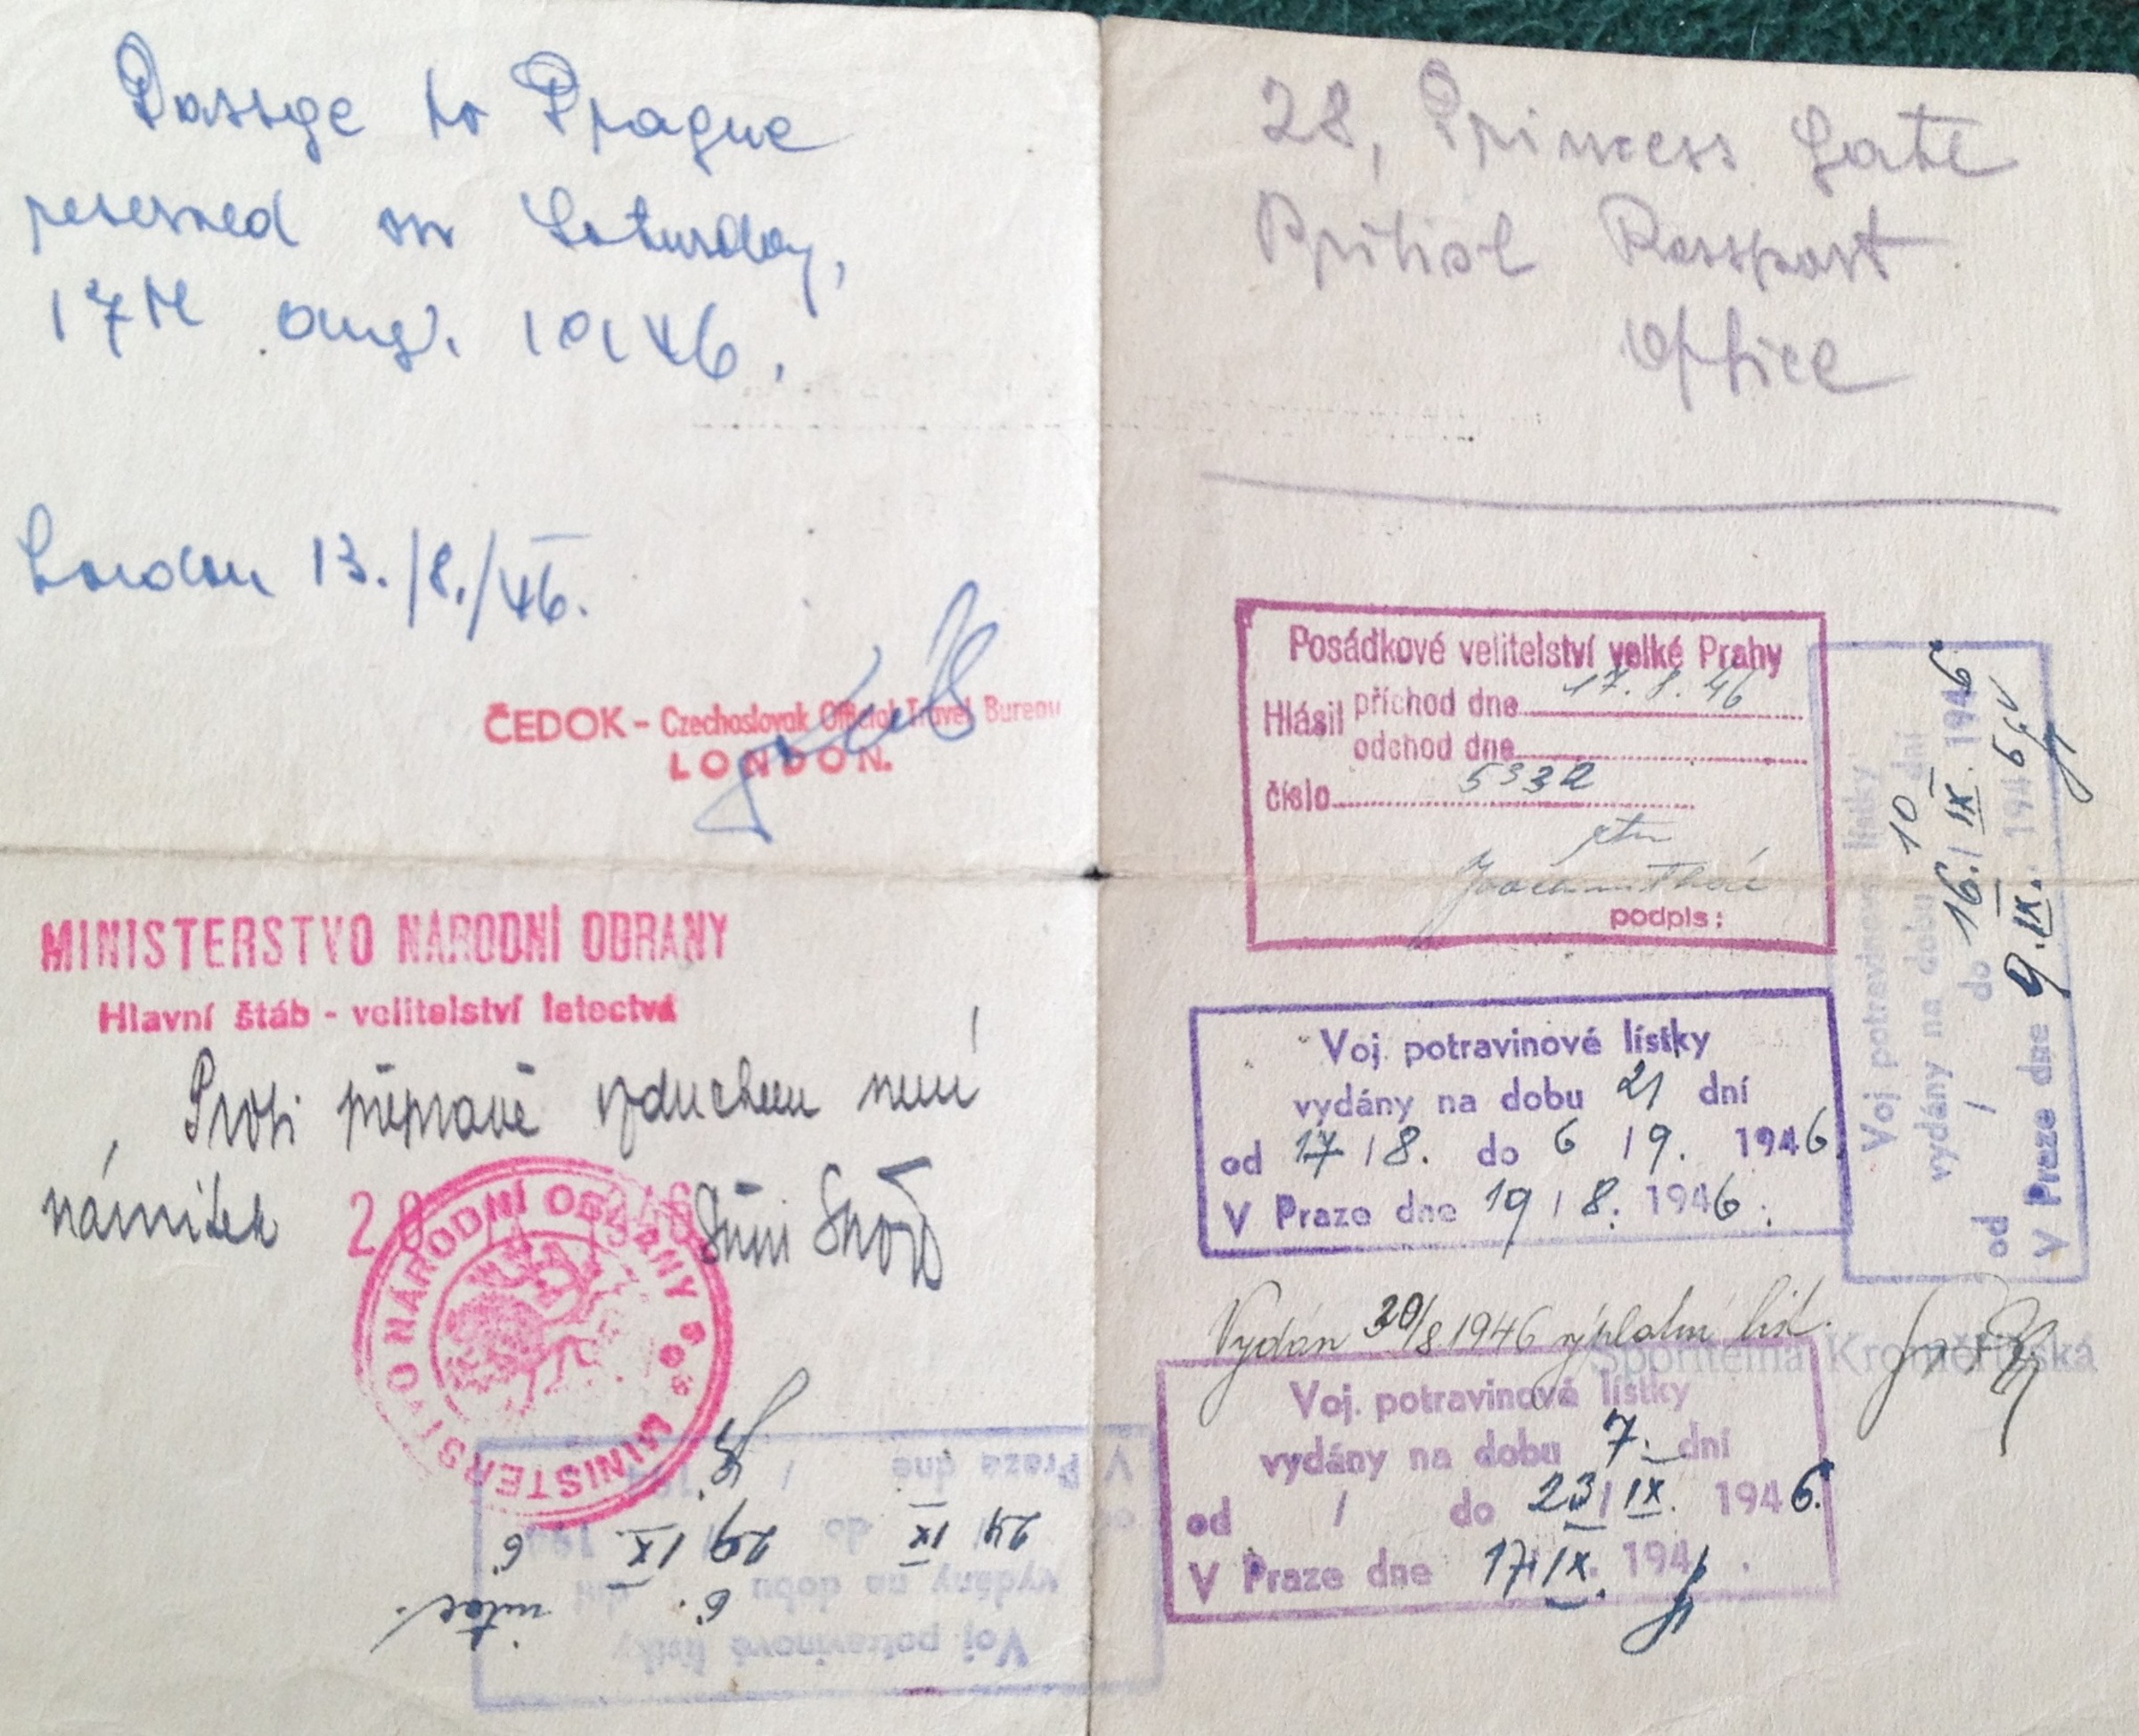 Passge to Prague
reserved on Saturday,
17th aug. 1946.
London 13./8./46.
ČEDOK - Czechoslovak Official Travel Bureau
LONDON.
MINISTERSTVO NÁRODNÍ OBRANY
Hlavní štáb - velitelství letectva
Proti přepravě vzduchem není
námitek
MINISTERSTVO NÁRODNÍ OBRANY
V Praze dne /
24/ IX do 29/ IX. 1946
vydány na dobu 6. dní
Voj potravinové lístky
28, Princess Gate
British Passport
Office
Posádkové velitelství velké Prahy
Hlásil příchod dne 17. 8. 46
odchod dne
číslo 5332
podpis:
Voj. potravinové lístky
vydány na dobu 21 dní
od 17/8. do 6/9. 1946.
V Praze dne 19/8. 1946.
Voj potravinové lístky
vydány na dobu 10 dní
od / do 16./IX. 1946
V Praze dne 9.IX. 1946
Vydán 30/8 1946 výplatní list.
Spořitelna Kroměřížská
Voj. potravinové lístky
vydány na dobu 7. dní
od / do 23/IX. 1946.
V Praze dne 17/IX. 194